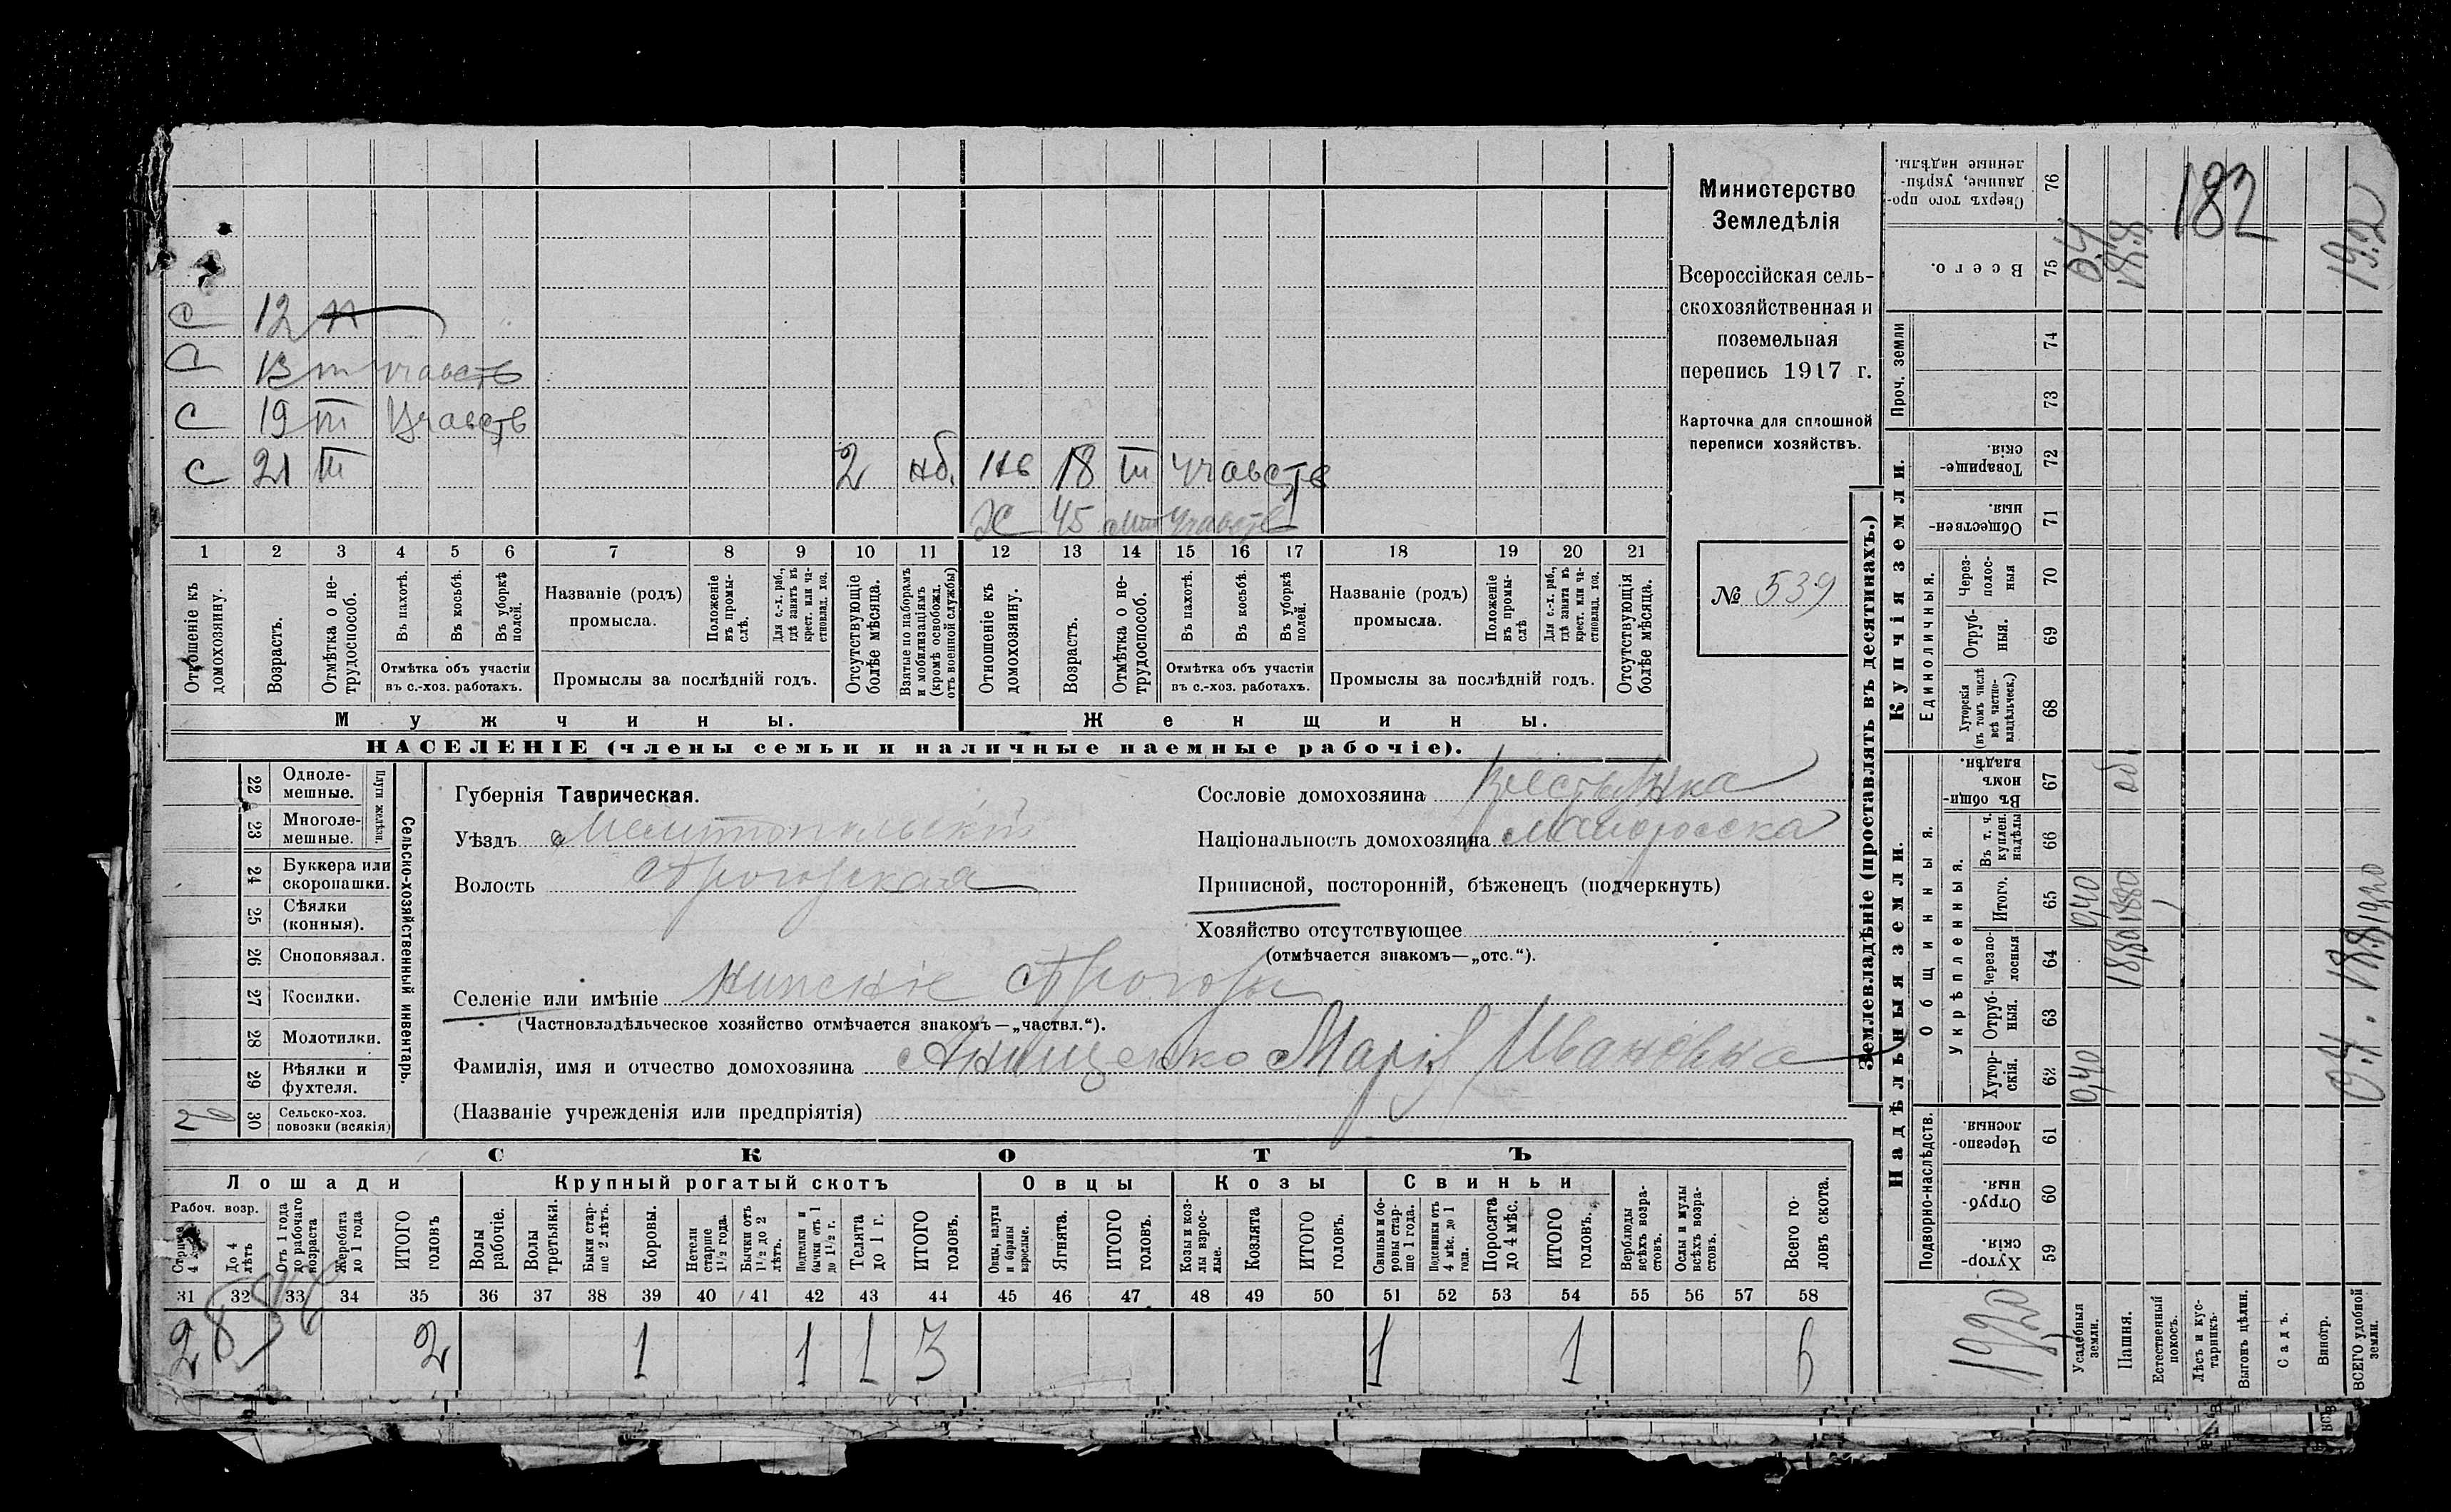 Министерство
Земледѣлія
Всероссійская сель-
скохозяйственная и
поземельная
перепись 1917 г.
Карточка для сплошной
переписи хозяйствъ.
№ 539
182
С 12
С 13 участв
С 19 ш Участв
С 21 ш 2 нб. Нв 18 ш участв
Ж 45 участв
1 2 3 4 5 6 7 8 9 10 11 12 13 14 15 16 17 18 19 20 21
Отношеніе къ домохозяину.
Возрастъ.
Отмѣтка о не-трудоспособ.
Въ пахотѣ.
Въ косьбѣ.
Въ уборкѣ полей.
Отмѣтка объ участіи въ с.-хоз. работахъ.
Названіе (родъ) промысла.
Положеніе въ промы-слѣ.
Для с.-х. раб., гдѣ занятъ въ крест. или ча-стновлад. хоз.
Промыслы за послѣдній годъ.
Отсутствующіе болѣе мѣсяца.
Взятые по наборамъ и мобилизаціямъ (кромѣ освобожд. отъ военной службы)
Отношеніе къ домохозяину.
Возрастъ.
Отмѣтка о не-трудоспособ.
Въ пахотѣ.
Въ косьбѣ.
Въ уборкѣ полей.
Отмѣтка объ участіи въ с.-хоз. работахъ.
Названіе (родъ) промысла.
Положеніе въ промы-слѣ
Для с.-х. раб., гдѣ занята въ крест. или ча-стновлад. хоз.
Промыслы за послѣдній годъ.
Отсутствующія болѣе мѣсяца.
Мужчины. Женщины.
НАСЕЛЕНІЕ (члены семьи и наличные наемные рабочіе).
Сельско-хозяйственный инвентарь.
Плуги желѣзн.
22 Одноле-мешные.
23 Многоле-мешные.
24 Буккера или скоропашки.
25 Сѣялки (конныя).
26 Сноповязал.
27 Косилки.
28 Молотилки.
29 Вѣялки и фухтеля.
30 Сельско-хоз. повозки (всякія)
2
Губернія Таврическая.
Уѣздъ Мелитопольскій
Волость
Сословіе домохозяина крестьянка
Національность домохозяина малороска
Приписной, посторонній, бѣженецъ (подчеркнуть)
Хозяйство отсутствующее
(отмѣчается знакомъ—„отс.“).
Селеніе или имѣніе
(Частновладѣльческое хозяйство отмѣчается знакомъ—„частвл.“).
Фамилія, имя и отчество домохозяина Анищенко Марія Ивановна
(Названіе учрежденія или предпріятія)
СКОТЪ
Лошади Крупный рогатый скотъ Овцы Козы Свиньи
Рабоч. возр.
До 4 лѣтъ
Отъ 1 года до рабочаго возраста
Жеребята до 1 года
ИТОГО головъ
Волы рабочіе.
Волы третьяки.
Быки стар-ше 2 лѣтъ.
Коровы.
Нетели старше 1½ года.
Бычки отъ 1½ до 2 лѣтъ.
Подтелки и бычки отъ 1 до 1½ г.
Телята до 1 г.
ИТОГО головъ.
Овцы, валухи и бараны взрослые.
Ягнята.
ИТОГО головъ.
Козы и коз-лы взрос-лые.
Козлята
ИТОГО головъ.
Свиньи и бо-ровы стар-ше 1 года.
Подсвинки отъ 4 мѣс. до 1 года.
Поросята до 4 мѣс.
ИТОГО головъ.
Верблюды всѣхъ возра-стовъ.
Ослы и мулы всѣхъ возра-стовъ.
Всего го-ловъ скота.
31 32 33 34 35 36 37 38 39 40 41 42 43 44 45 46 47 48 49 50 51 52 53 54 55 56 57 58
2 2 1 1 1 3 1 1 6
Землевладѣніе (проставлять въ десятинахъ.)
Надѣльныя земли. Купчія земли.
Проч. земли
Подворно-наслѣдств.
Общинныя.
Укрѣпленныя.
Единоличныя.
59 Хутор-скія.
60 Отруб-ныя.
61 Черезпо-лосныя.
62 Хутор-скія.
63 Отруб-ныя.
64 Черезпо-лосныя
65 Итого.
66 Въ т. ч. куплен. надѣлы
67 Въ общин-номъ владѣн.
68 Хуторскія (въ томъ числѣ всѣ частно-владѣльческ.)
69 Отруб-ныя.
70 Черезпо-лос-ныя
71 Обществен-ныя.
72 Товарище-скія.
73
74
75 Всего.
76 Сверхъ того про-данные, укрѣп-ленные надѣлы.
Усадебныя земли.
Пашня.
Естественный покосъ.
Лѣсъ и кус-тарникъ.
Выгонъ цѣлин.
Садъ.
Виногр.
ВСЕГО удобной земли.
0,40 0,40 0,4
18,80 18,80 18.8
0.4 18.8 19,20 19.2
19,20